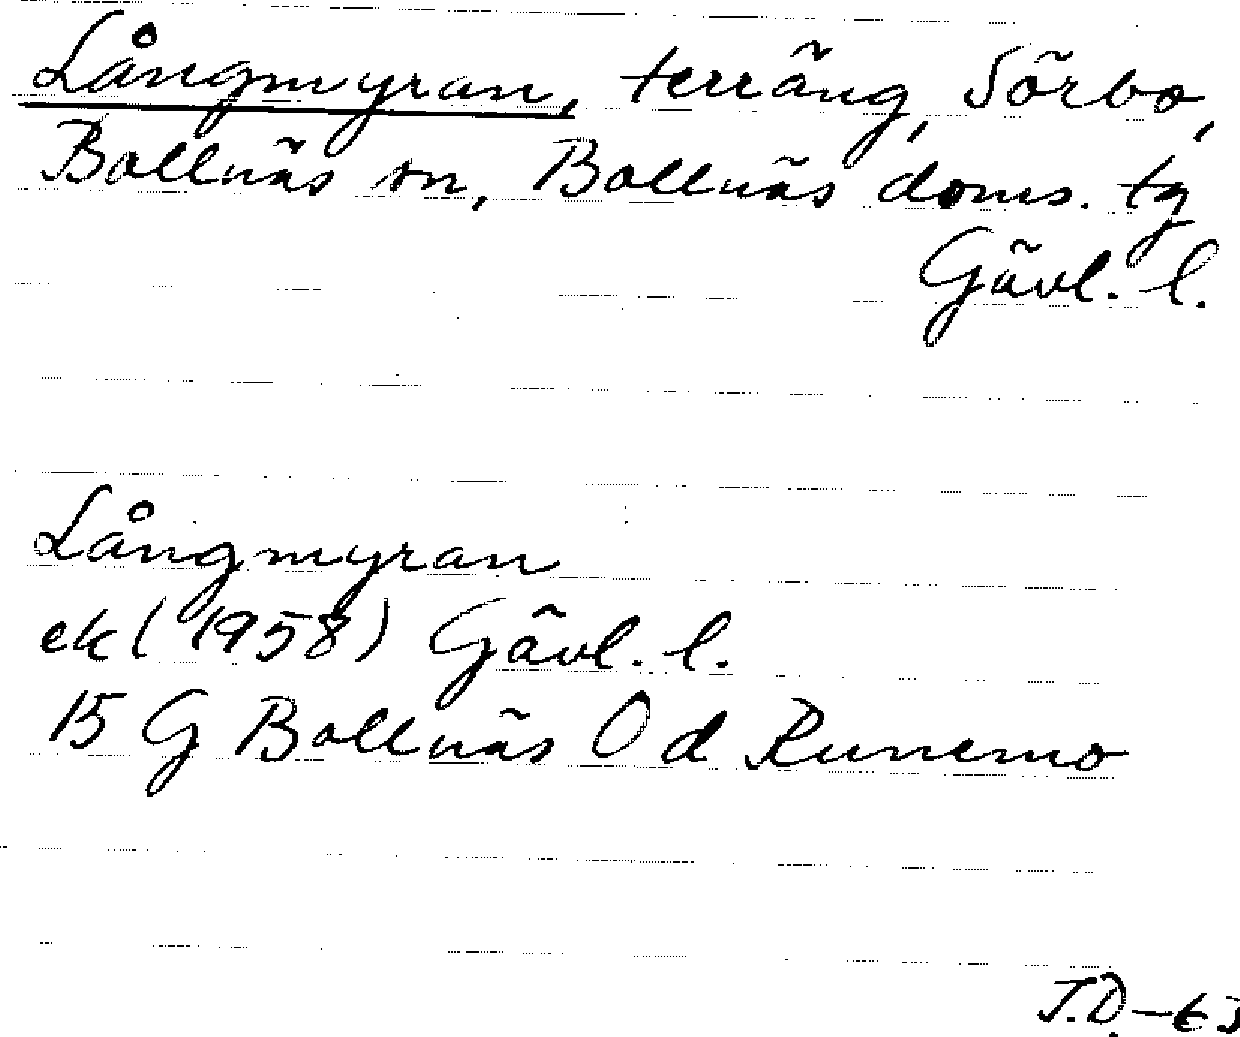 Långmyran, terräng, Sörbo,
Bollnäs sn, Bollnäs doms. tg
Gävl. l.
Långmyran
ek (1958) Gävl. l.
15 G Bollnäs O d Runemo
J.D.-63